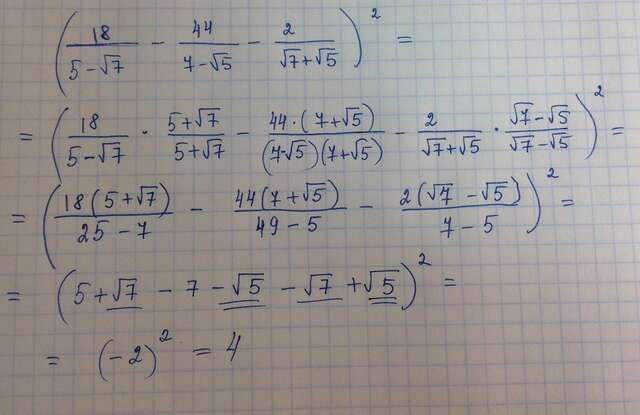 (18/(5-√7) - 44/(7-√5) - 2/(√7+√5))² =
= (18/(5-√7) · (5+√7)/(5+√7) - 44·(7+√5)/((7-√5)(7+√5)) - 2/(√7+√5) · (√7-√5)/(√7-√5))² =
= (18(5+√7)/(25-7) - 44(7+√5)/(49-5) - 2(√7-√5)/(7-5))² =
= (5+√7 - 7 - √5 - √7 + √5)² =
= (-2)² = 4